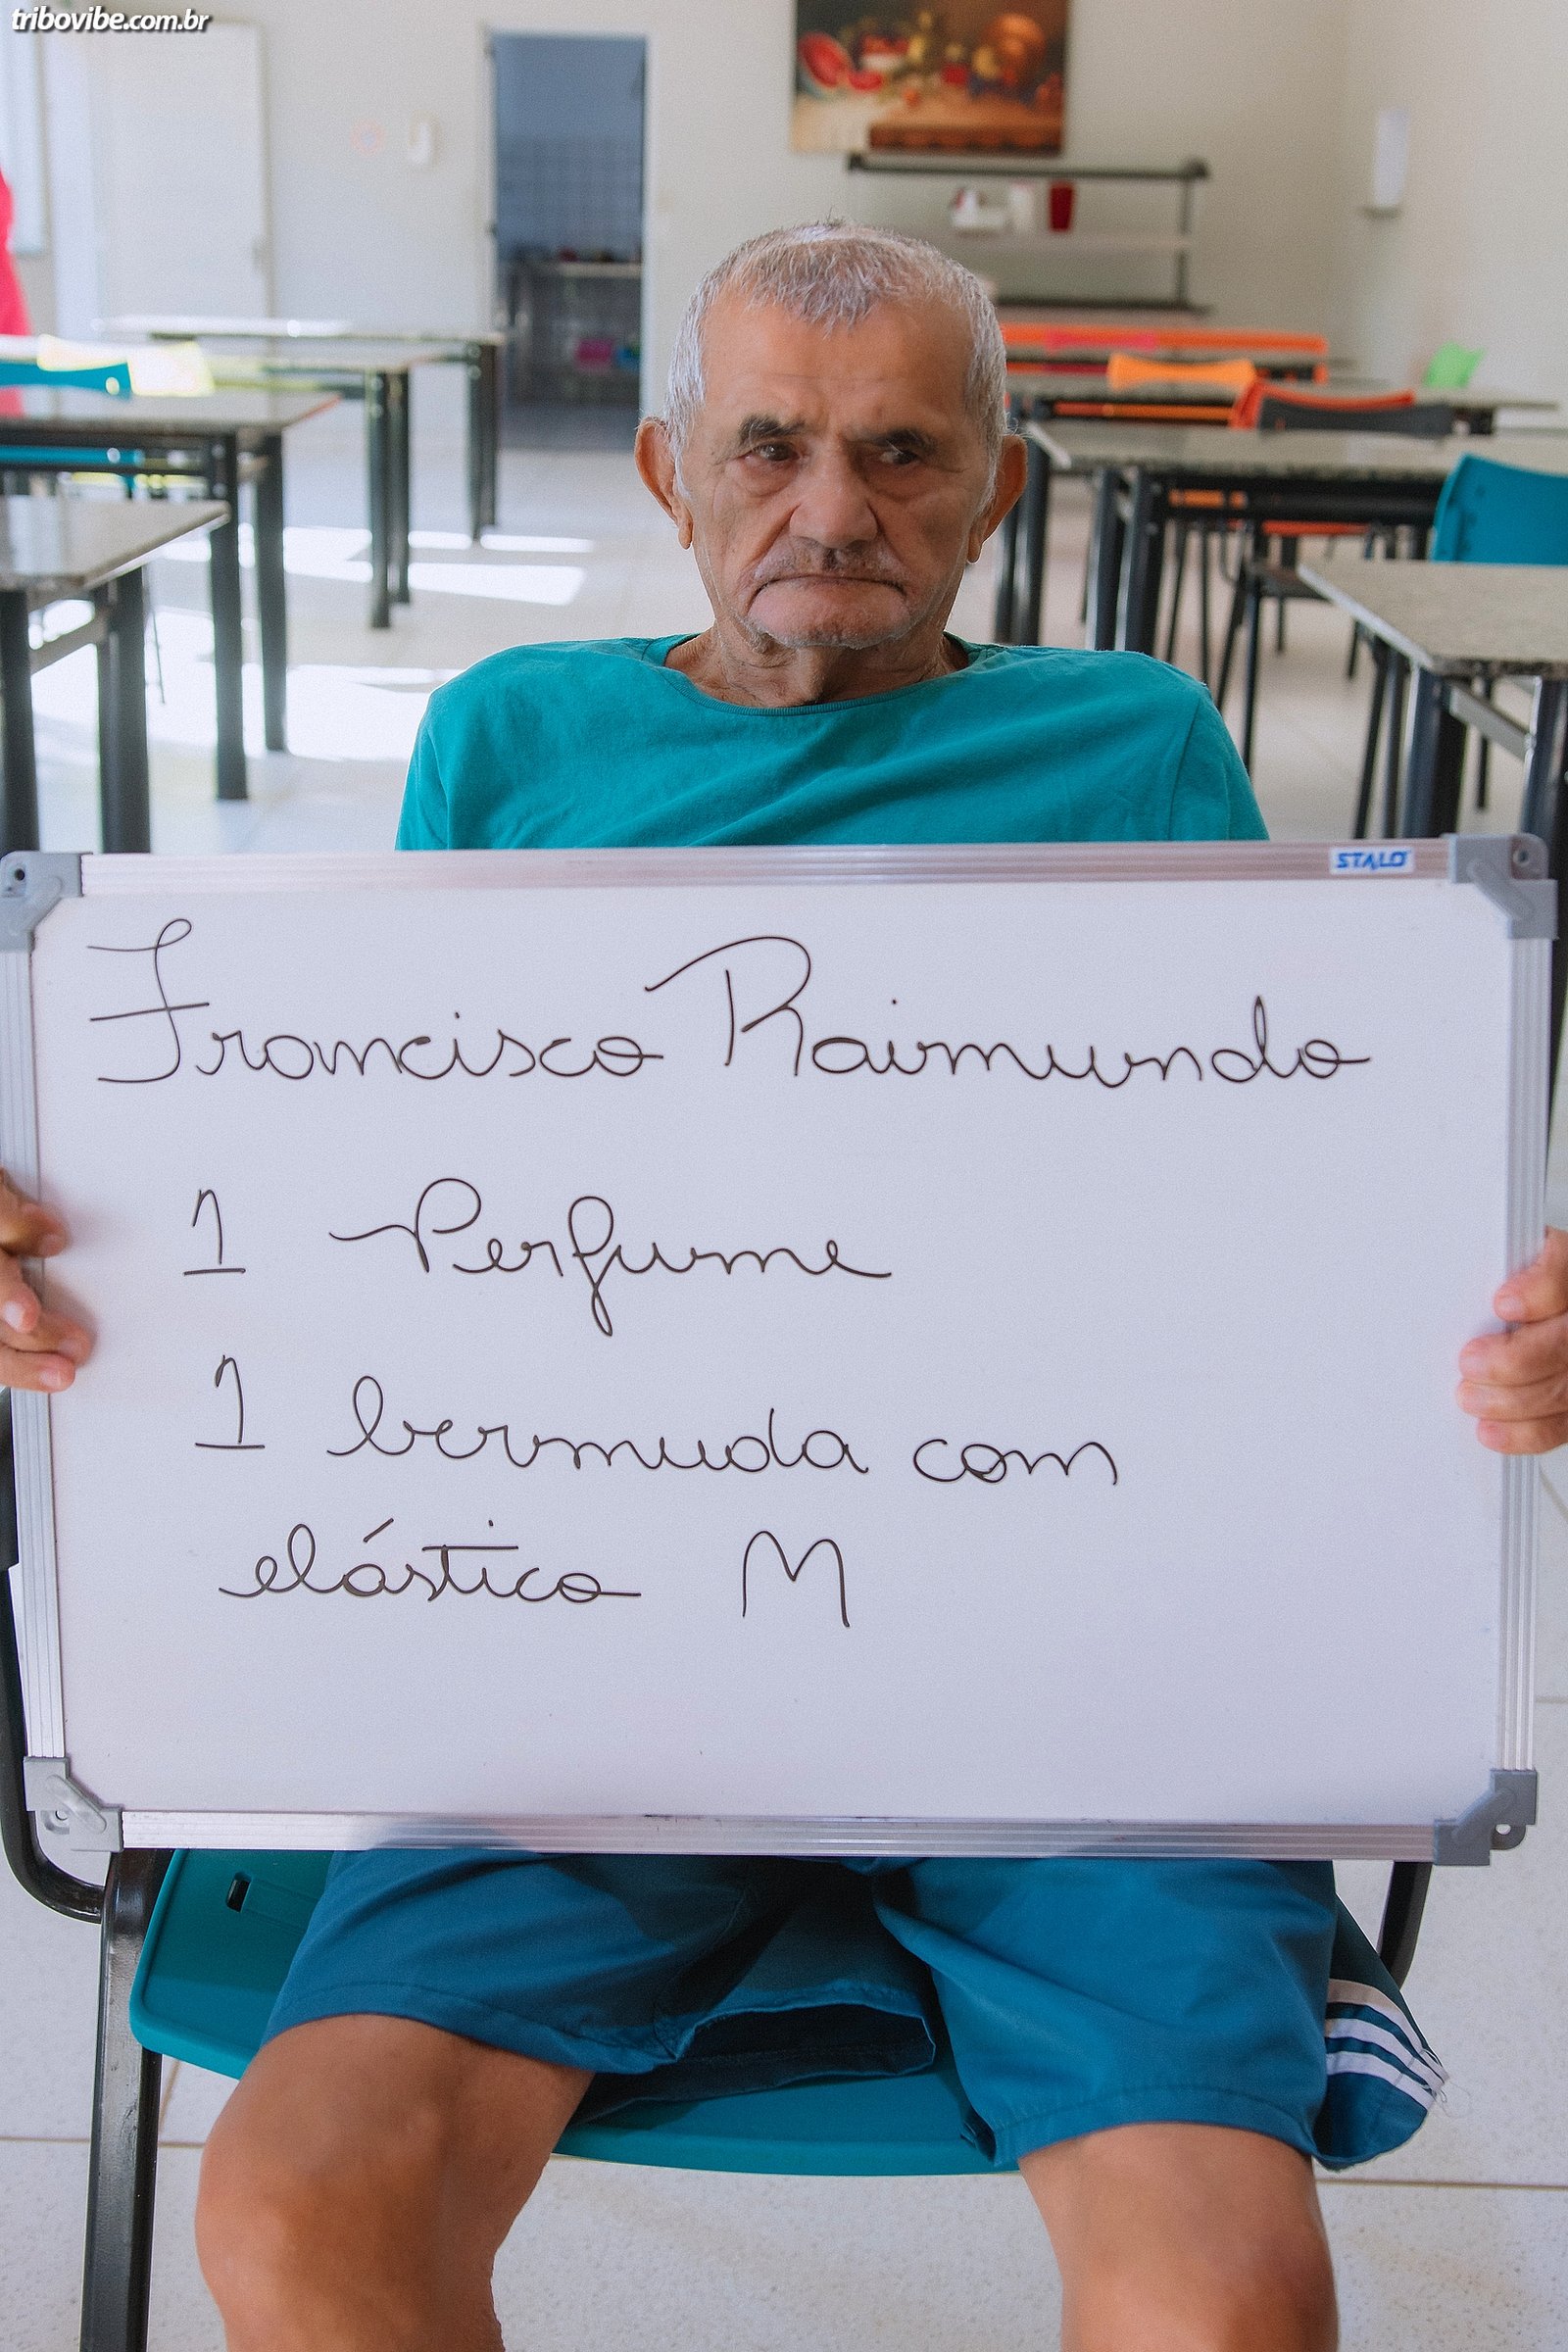 tribovibe.com.br
STALO
Francisco Raimundo
1 Perfume
1 bermuda com
elástico M